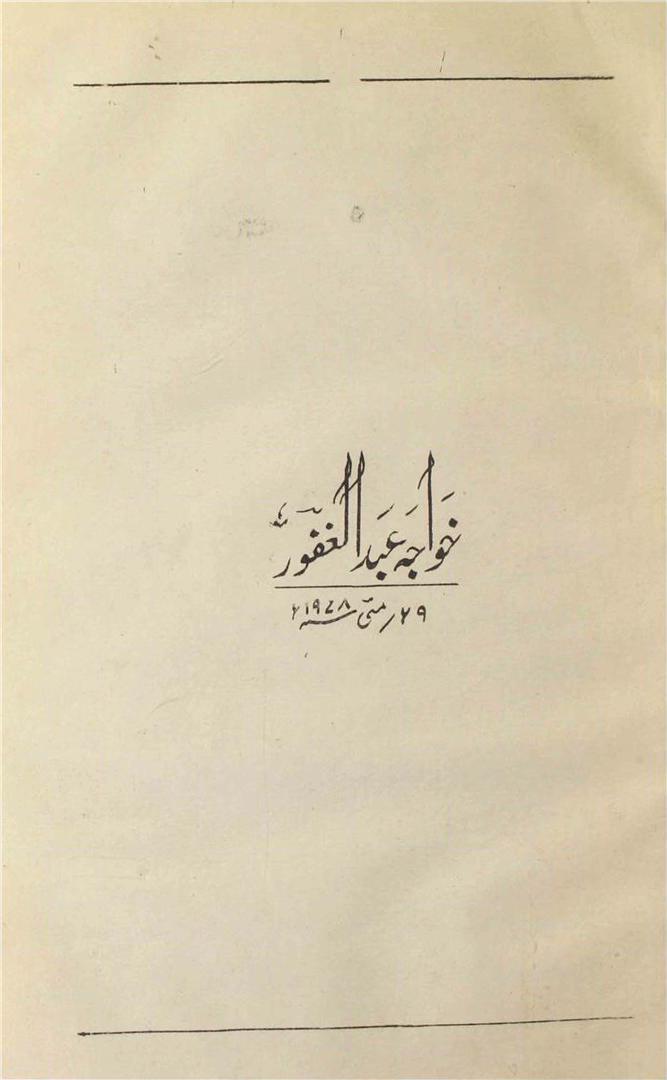 خواجہ عبدالغفور
۲۹؍ مئی سنہ ۱۹۷۸ء